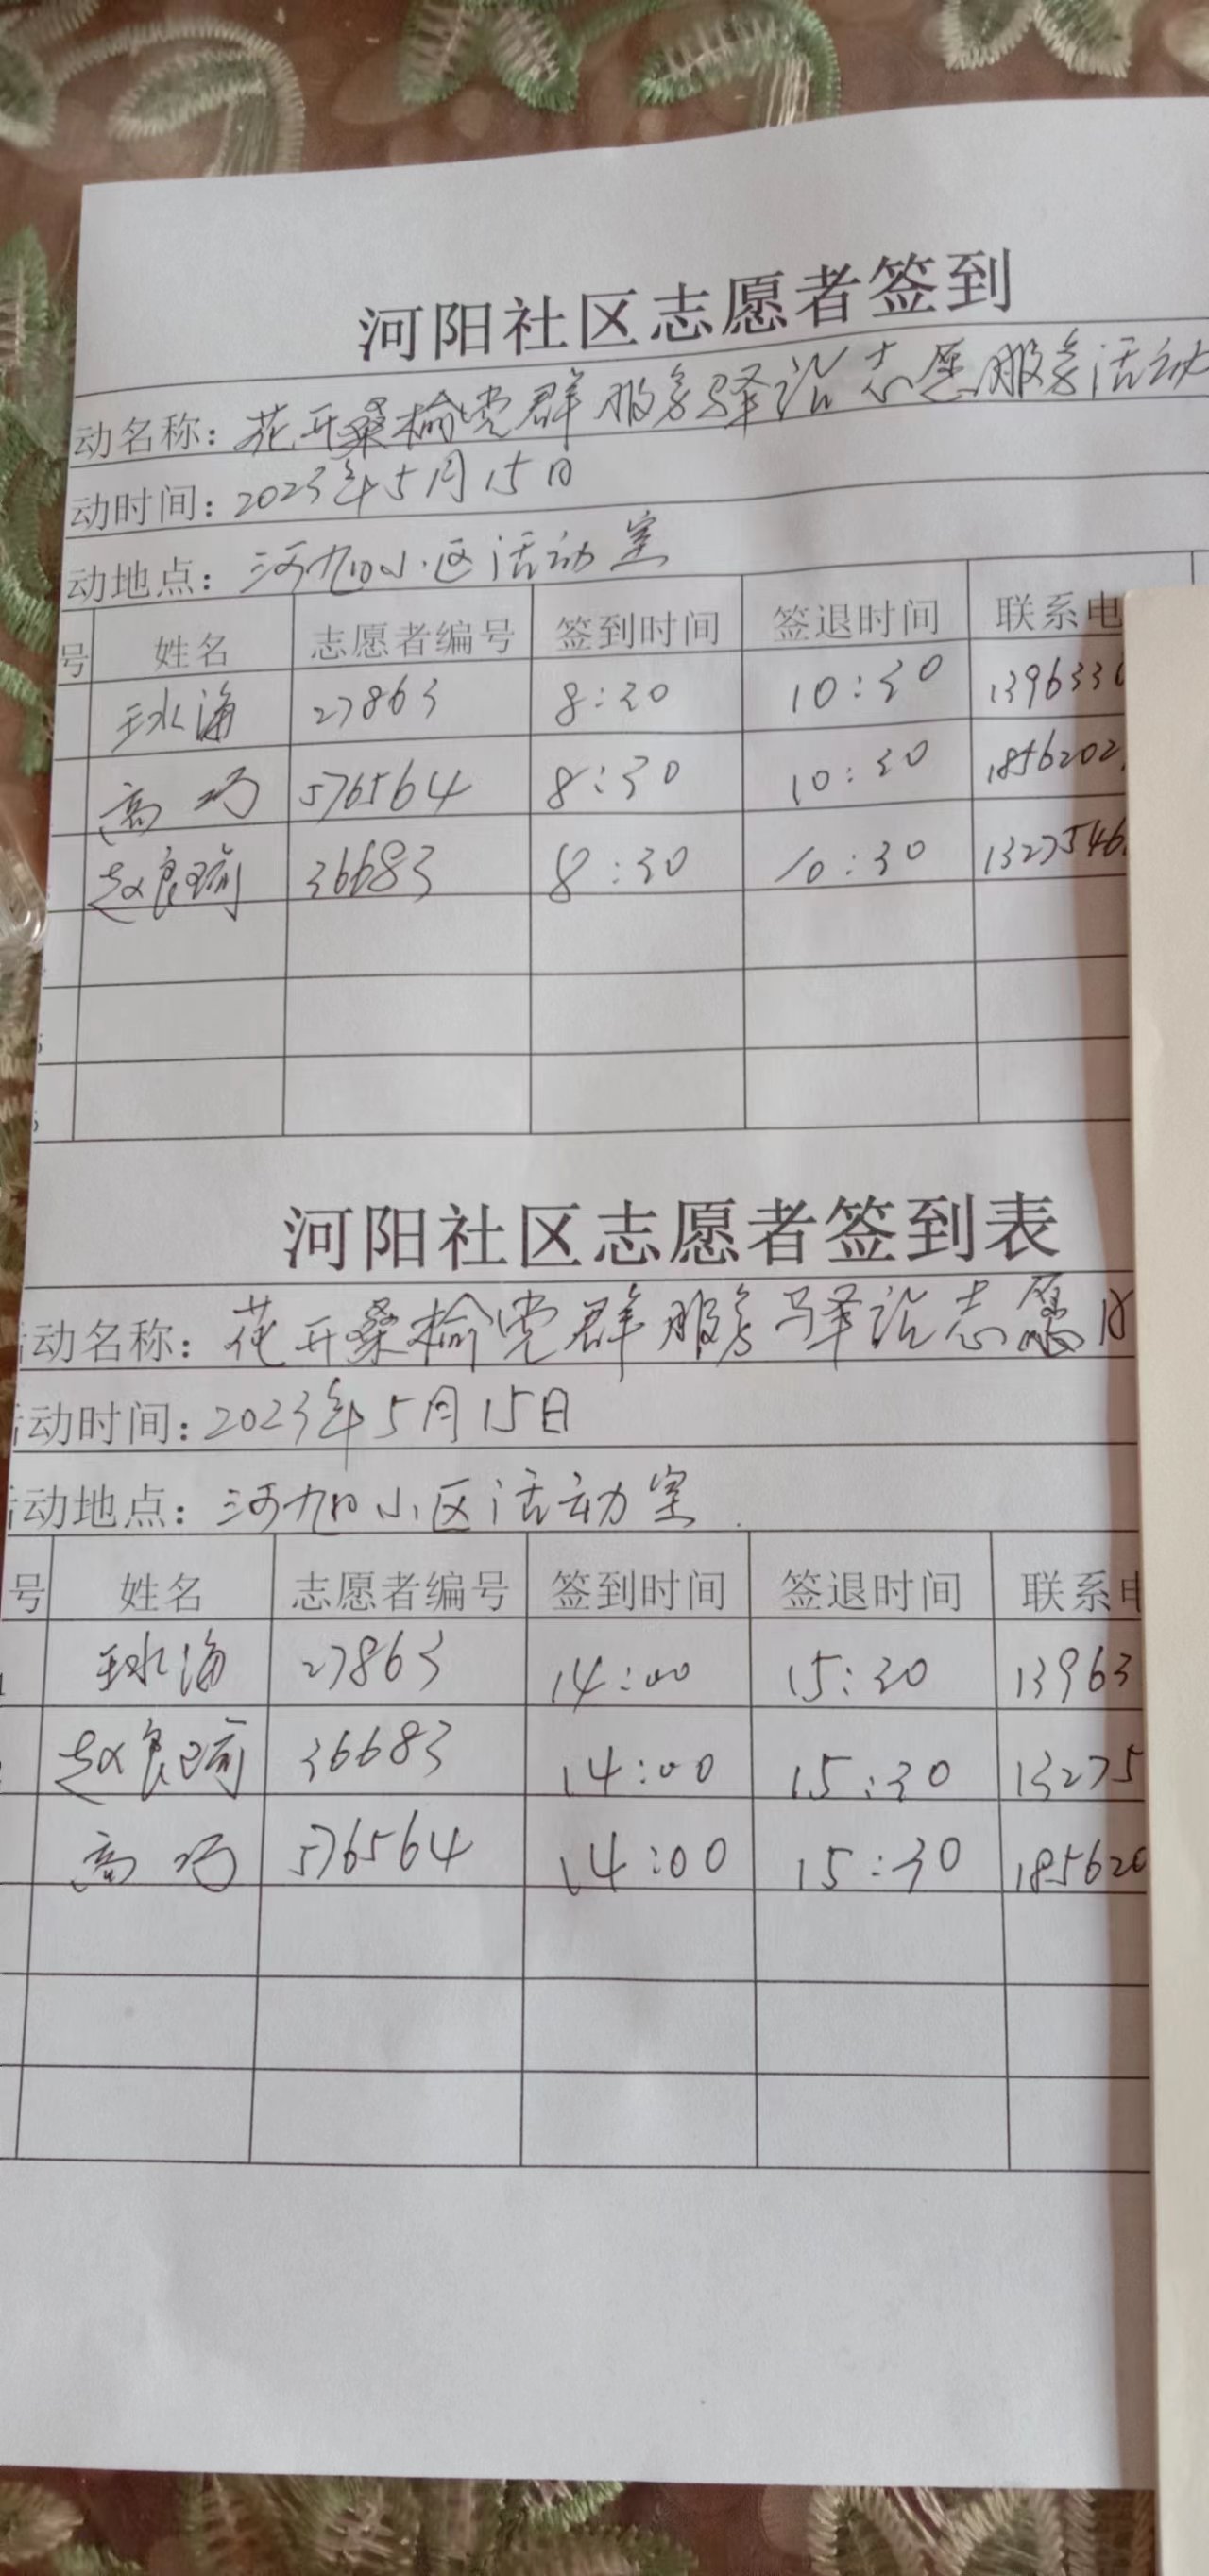 河阳社区志愿者签到
动名称：花开桑榆党群服务驿站志愿服务活动
动时间：2023年5月15日
动地点：河旭小区活动室
号 姓名 志愿者编号 签到时间 签退时间 联系电
王水海 27863 8:30 10:30 1396336
高巧 576564 8:30 10:30 1856202
赵良瑜 36683 8:30 10:30 1327546
河阳社区志愿者签到表
活动名称：花开桑榆党群服务驿站志愿
活动时间：2023年5月15日
活动地点：河旭小区活动室
号 姓名 志愿者编号 签到时间 签退时间 联系电
王水海 27863 14:00 15:30 13963
赵良瑜 36683 14:00 15:30 13275
高巧 576564 14:00 15:30 185620